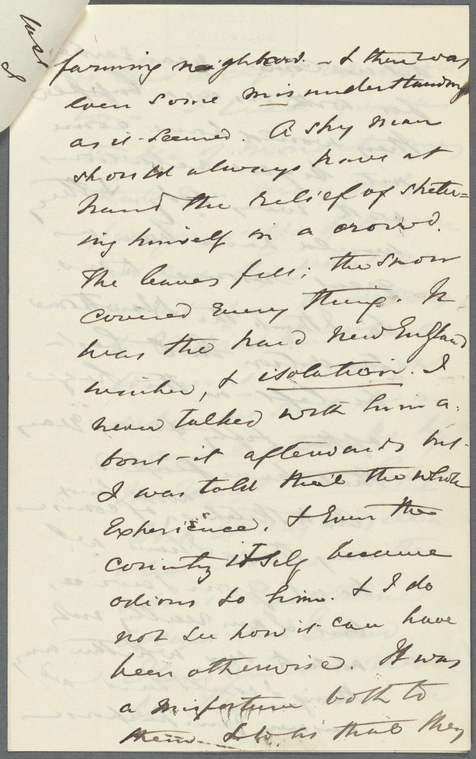 last
farming neighbors. — & there was
even some misunderstanding
as it seemed. A shy man
should always have at
hand the relief of shelter-
ing himself in a crowd.
The leaves fell; the snow
covered every thing. It
was the hard New England
winter, & isolation. I
never talked with him a-
bout it afterwards but
I was told that the whole
experience, & even the
country itself became
odious to him. & I do
not see how it can have
been otherwise. It was
a misfortune both to
them & to us that they